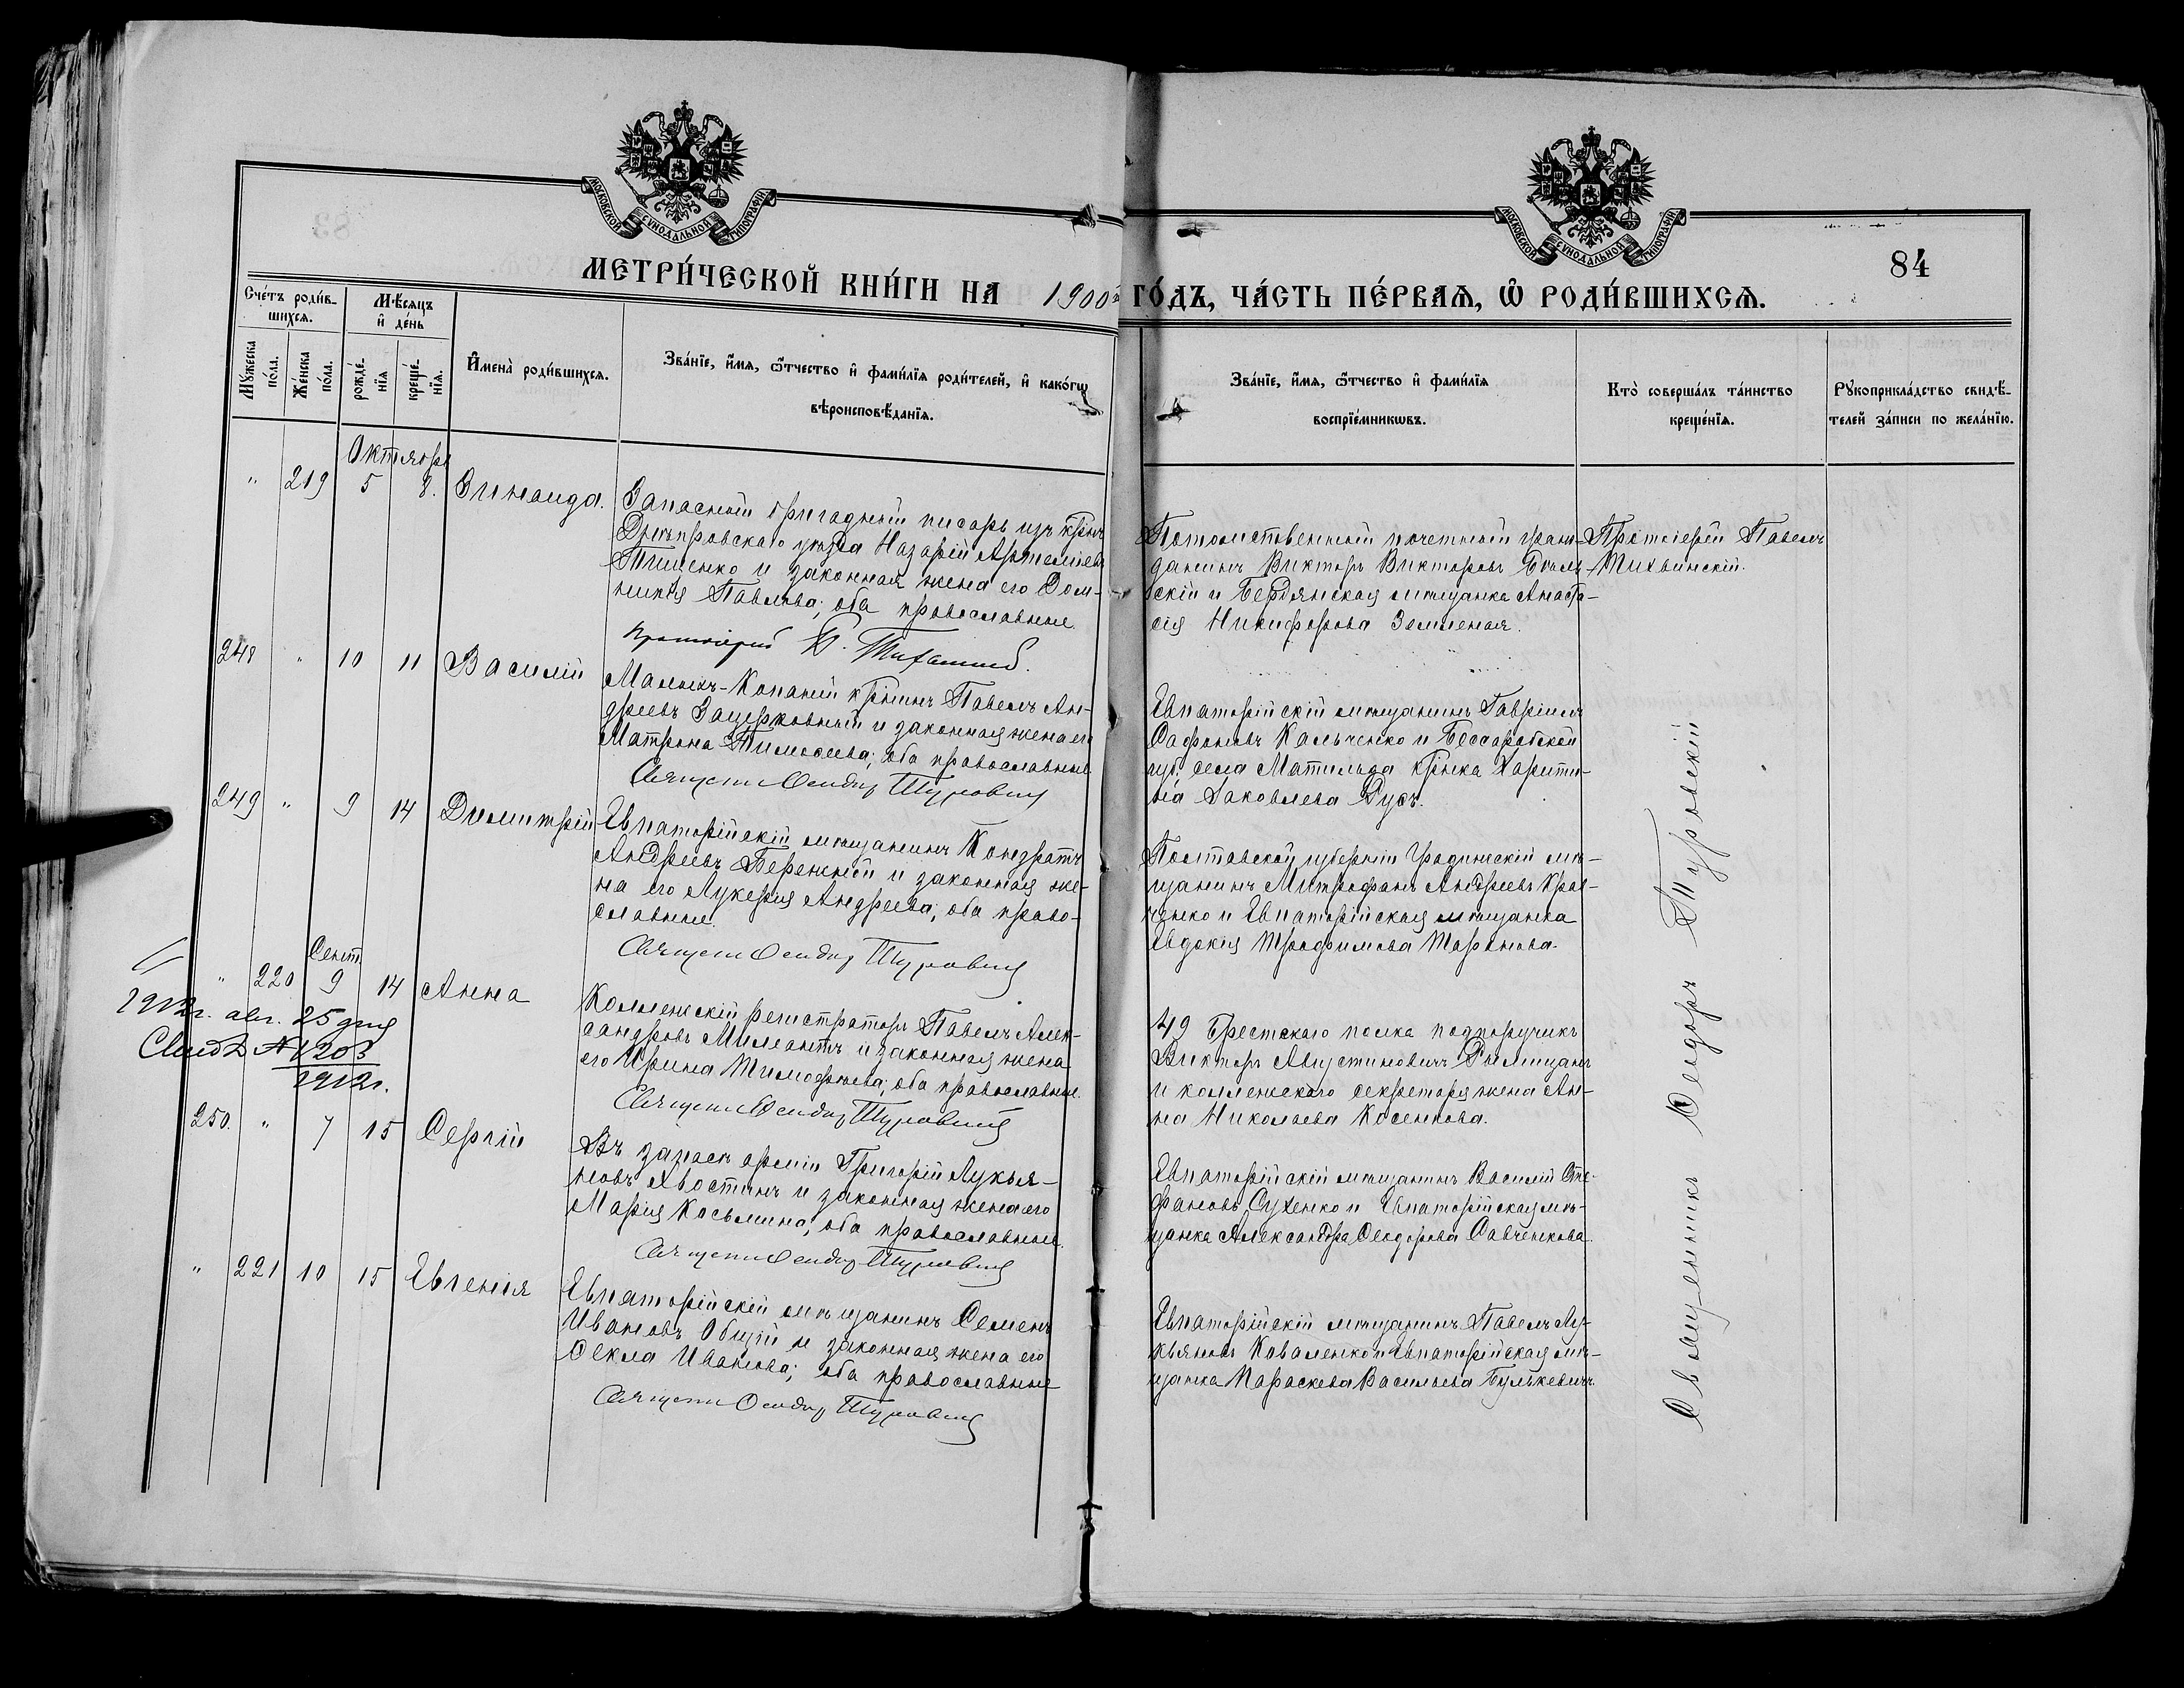 МОСКОВСКОЙ СУНОДАЛЬНОЙ ТИПОГРАФІИ
МОСКОВСКОЙ СУНОДАЛЬНОЙ ТИПОГРАФІИ
84
МЕТРИ́ЧЕСКОЙ КНИ́ГИ НА 1900й ГО́ДЪ, ЧА́СТЬ ПЕ́РВАѦ, Ѽ РОДИ́ВШИХСѦ.
Сче́тъ роди́в-
шихсѧ.
Мѣ́сѧцъ
и҆ де́нь
Мꙋ́жеска
по́ла.
Же́нска
по́ла.
рожде́-
нїѧ
креще́-
нїѧ.
И҆мена̀ роди́вшихсѧ.
Зва́нїе, и҆́мѧ, ѻ҆́тчество и҆ фами́лїѧ роди́телей, и҆ како́гѡ
вѣроисповѣ́данїѧ.
Зва́нїе, и҆́мѧ, ѻ҆́тчество и҆ фами́лїѧ
воспрїе́мникѡвъ.
Кто̀ соверша́лъ та́инство
креще́нїѧ.
Рꙋкоприкла́дство свидѣ́-
телей за́писи по жела́нїю.
Октября
" 219 5 8. Зинаида.
Запасный бригадный писарь изъ крнъ
Днѣпровскаго уѣзда Назарій Артеміевъ
Тищенко и законная жена его Дом-
никія Павлова; оба православные.
Протоіерей П. Тихвинскій.
Потомственный почетный граж-
данинъ Викторъ Викторовъ
скій и Бердянская мѣщанка Анаста-
сія Никифорова Земленая.
Протоіерей Павелъ
Тихвинскій.
248 " 10 11 Василій
Малыхъ-Копаній крнинъ Павелъ Ан-
дреевъ Зацерковный и законная жена его
Матрона Тимоѳеева; оба православные
Священ Ѳеодоръ Туровскій
Евпаторійскій мѣщанинъ Гавріилъ
Сафоновъ Кальченко и Бессарабской
губ. села Матильда крнка Харити-
на Яковлева Русъ.
249 " 9 14 Димитрій
Евпаторійскій мѣщанинъ Кондратъ
Андреевъ Бережный и законная же-
на его Лукерія Андреева; оба право-
славные.
Священ Ѳеодоръ Туровскій
Полтавской губерніи Градижскій мѣ-
щанинъ Митрофанъ Андреевъ Крав-
ченко и Евпаторійская мѣщанка
Евдокія Трофимова Таранова.
Сент.
" 220 9 14 Анна
1912г. авг. 25 дня
Свид № 1203
1912г.
Коллежскій регистраторъ Павелъ Алек-
сандровъ Милеантъ и законная жена
его Ирина Тимофѣева; оба православные.
Священ Ѳеодоръ Туровскій
49 Брестскаго полка подпоручикъ
Викторъ Августиновичъ
и коллежскаго секретаря жена Ан-
на Николаева Косенкова.
250. " 7 15 Сергій
Въ запасѣ арміи Григорій Лукья-
новъ Хвостинъ и законная жена его
Марія Косьмина; оба православные.
Священ Ѳеодоръ Туровскій
Евпаторійскій мѣщанинъ Василій Сте-
фановъ Сухенко и Евпаторійская мѣ-
щанка Александра Ѳеодорова Савченкова.
" 221 10 15 Евгенія
Евпаторійскій мѣщанинъ Семенъ
Ивановъ Общій и законная жена его
Ѳекла Иванова; оба православные
Священ Ѳеодоръ Туровскій
Евпаторійскій мѣщанинъ Павелъ Лу-
кьяновъ Коваленко и Евпаторійская мѣ-
щанка Параскева Васильева Булькевичъ.
Священникъ Ѳеодоръ Туровскій